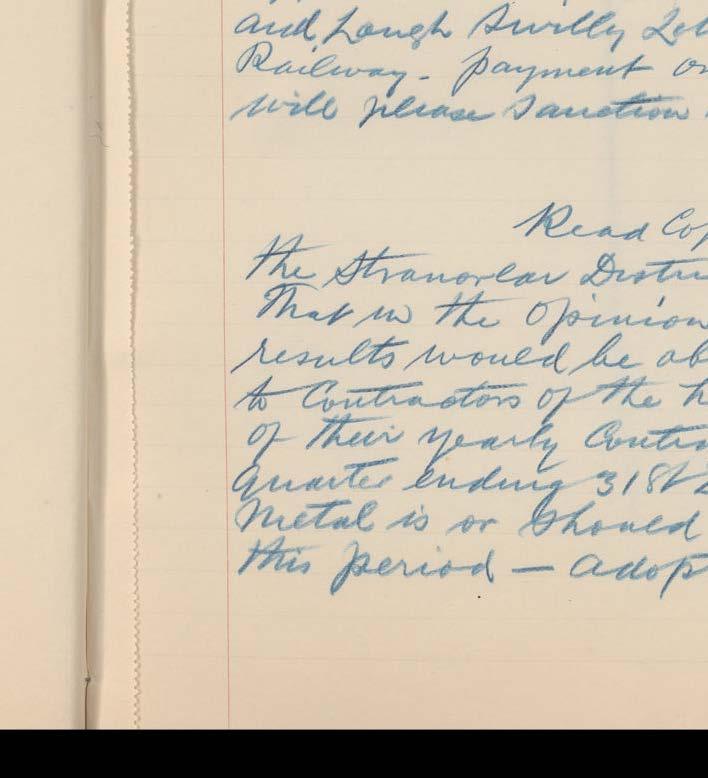 and Lough Swilly
Railway - payment on
will please sanction
Read Cop
the Stranorlar Distri
That in the opinion
results would be ob
to Contractors of the h
of their yearly Contra
quarter ending 31st D
Metal is or should
this period — adop